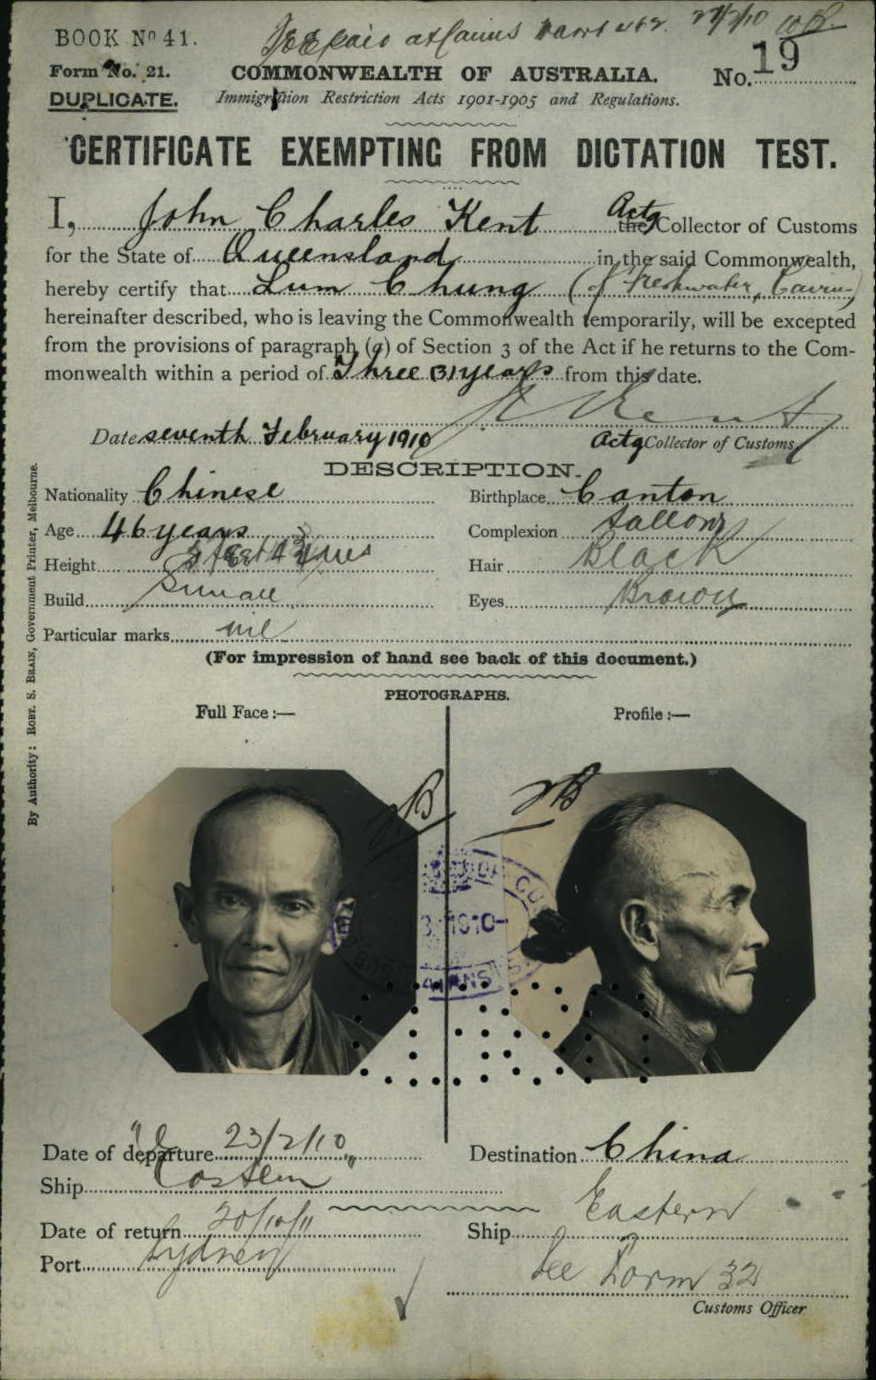 BOOK No 41.
paid at Cairns
Form No. 21.
COMMONWEALTH OF AUSTRALIA.
No. 19
DUPLICATE.
Immigration Restriction Acts 1901-1905 and Regulations.
CERTIFICATE EXEMPTING FROM DICTATION TEST.
I, John Charles Kent Actg the Collector of Customs
for the State of Queensland in the said Commonwealth,
hereby certify that Lum Chung (of Freshwater, Cairns)
hereinafter described, who is leaving the Commonwealth temporarily, will be excepted
from the provisions of paragraph (a) of Section 3 of the Act if he returns to the Com-
monwealth within a period of Three (3) years from this date.
Date seventh February 1910
Kent
Actg Collector of Customs
DESCRIPTION.
Nationality Chinese
Birthplace Canton
Age 46 years
Complexion Sallow
Height
Hair Black
Build Small
Eyes Brown
Particular marks nil
(For impression of hand see back of this document.)
PHOTOGRAPHS.
Full Face :—
Profile :—
1910
Date of departure 23/2/10
Destination China
Ship Eastern
Date of return 20/10/11
Ship Eastern
Port Sydney
See Form 32
Customs Officer
By Authority: ROBT. S. BRAIN, Government Printer, Melbourne.